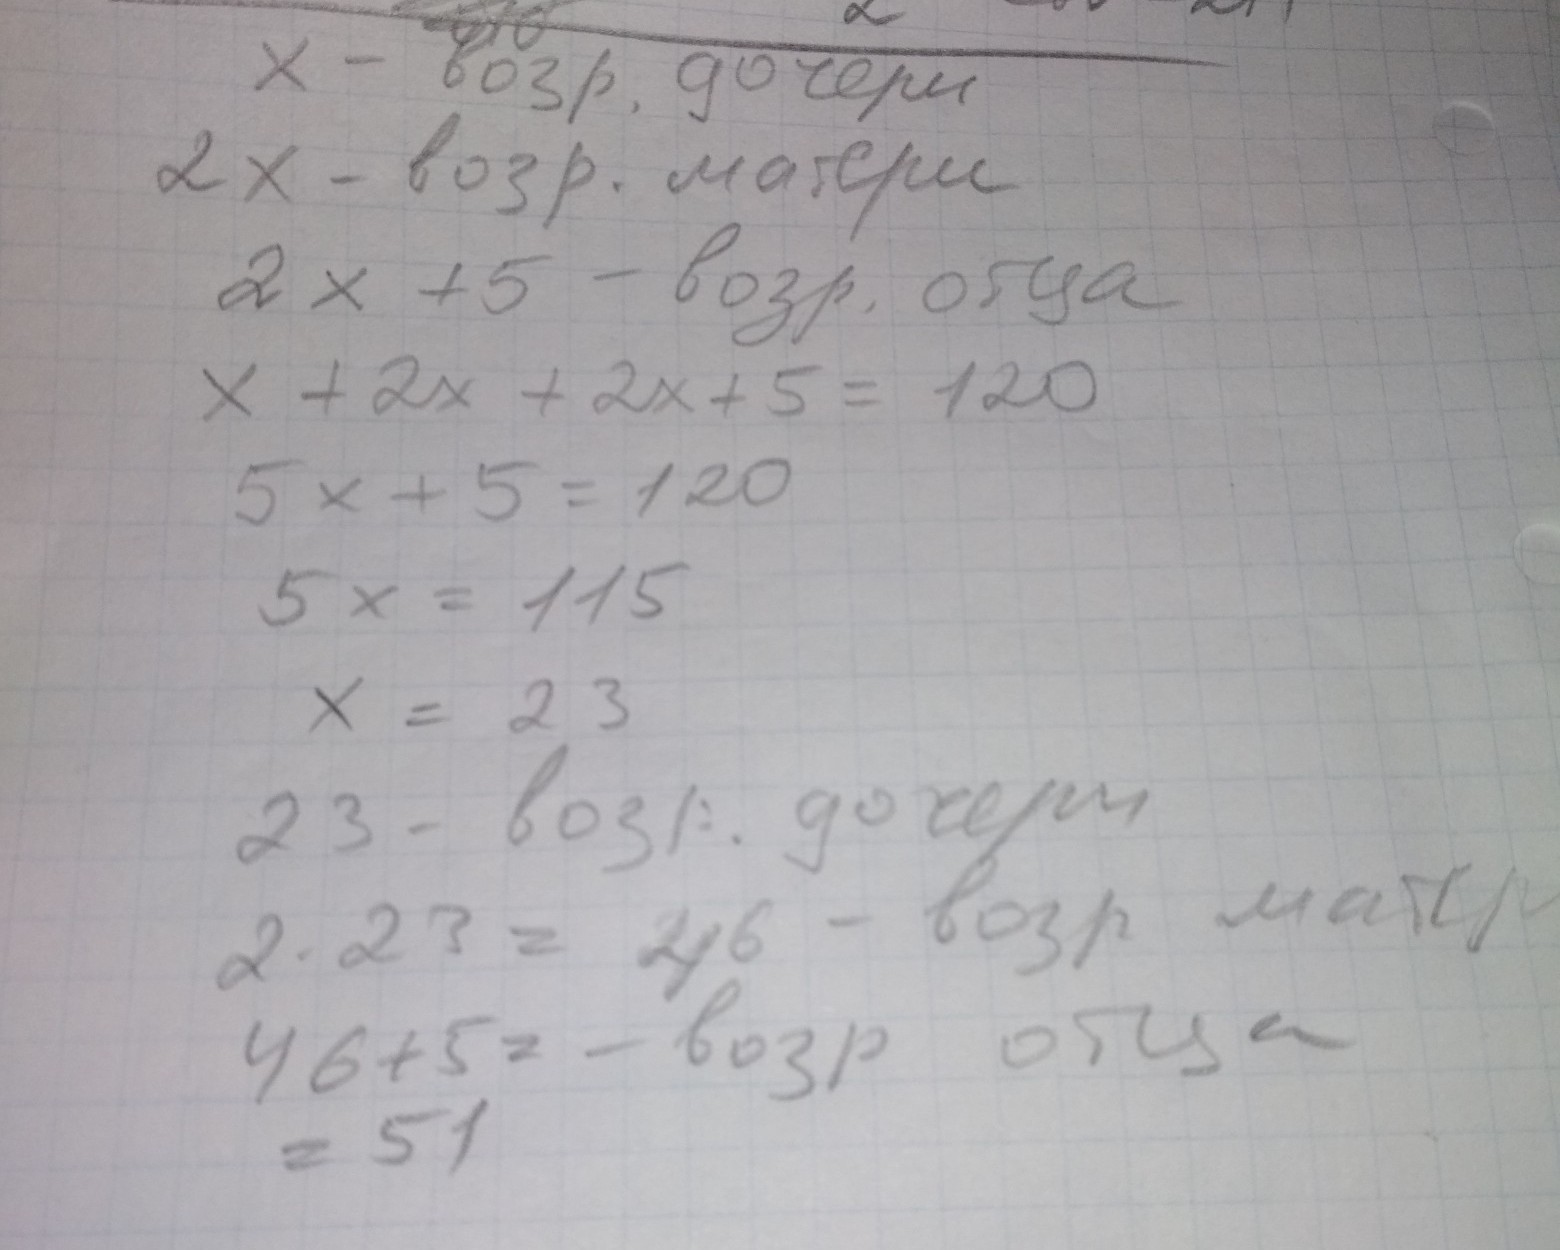 x - возр. дочери
2x - возр. матери
2x + 5 - возр. отца
x + 2x + 2x + 5 = 120
5x + 5 = 120
5x = 115
x = 23
23 - возр. дочери
2 · 23 = 46 - возр матер
46 + 5 = - возр отца
= 51